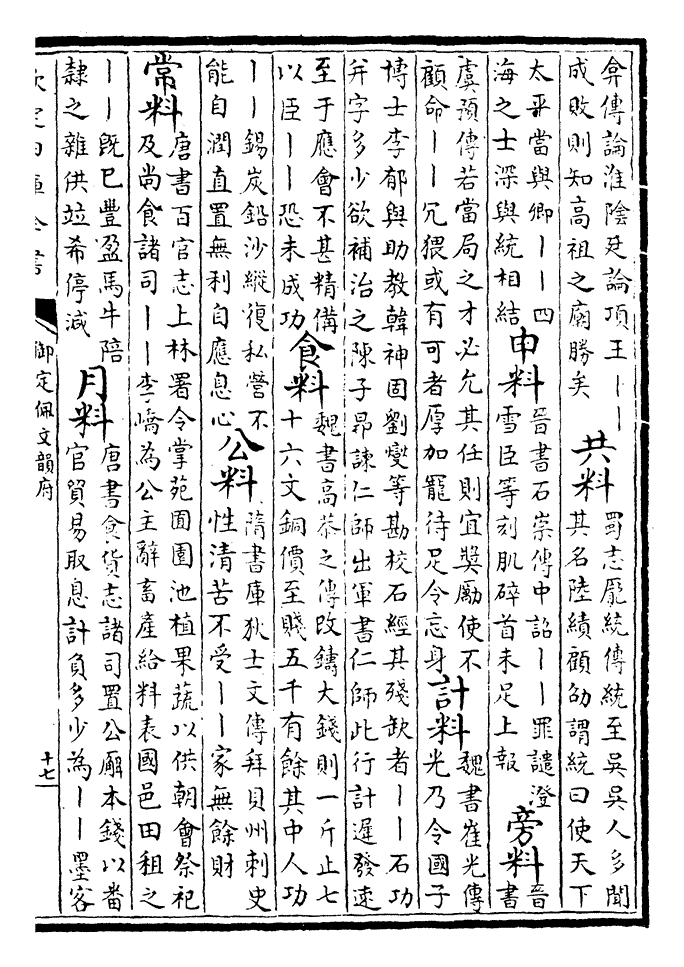 弇傳論淮陰廷論項王丨丨
成敗則知高祖之廟勝矣
共料
蜀志龐統傳統至吳吳人多聞
其名陸績顧劭謂統曰使天下
太平當與卿丨丨四
海之士深與統相結
申料
晉書石崇傳中詔丨丨罪譴澄
雪臣等刻肌碎首未足上報
旁料
晉
書
虞預傳若當局之才必允其任則宜獎勵使不
顧命丨丨冗猥或有可者厚加寵待足令忘身
計料
魏書崔光傳
光乃令國子
博士李郁與助教韓神固劉燮等勘校石經其殘缺者丨丨石功
并字多少欲補治之陳子昂諫仁師出軍書仁師此行計遲發速
至于應會不甚精備
以臣丨丨恐未成功
食料
魏書高恭之傳改鑄大錢則一斤止七
十六文銅價至賤五千有餘其中人功
丨丨錫炭鉛沙縱復私營不
能自潤直置無利自應息心
公料
隋書庫狄士文傳拜貝州刺史
性清苦不受丨丨家無餘財
常料
唐書百官志上林署令掌苑囿園池植果蔬以供朝會祭祀
及尚食諸司丨丨李嶠為公主辭畜產給料表國邑田租之
丨丨既已豐盈馬牛陪
隸之雜供竝希停減
月料
唐書食貨志諸司置公廨本錢以畨
官貿易取息計負多少為丨丨墨客
欽定四庫全書
御定佩文韻府
十七